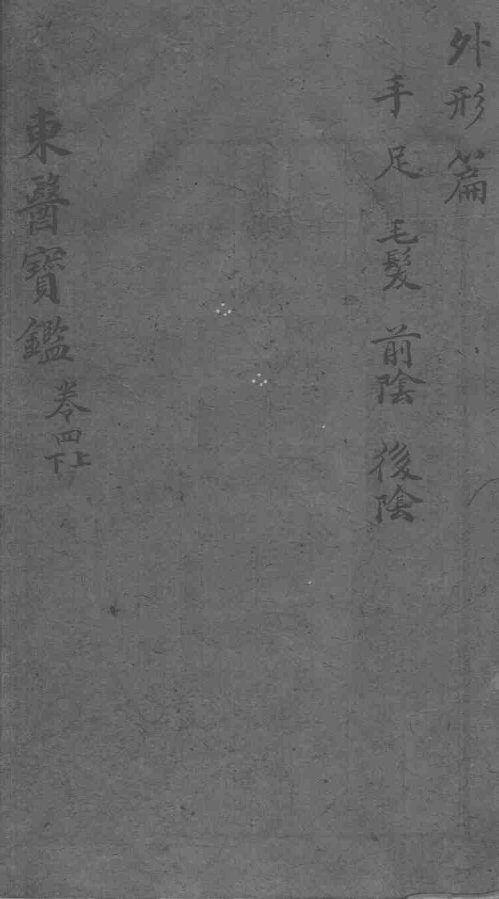 外形篇
手足 毛髮 前陰 後陰
東醫寶鑑 卷四上下